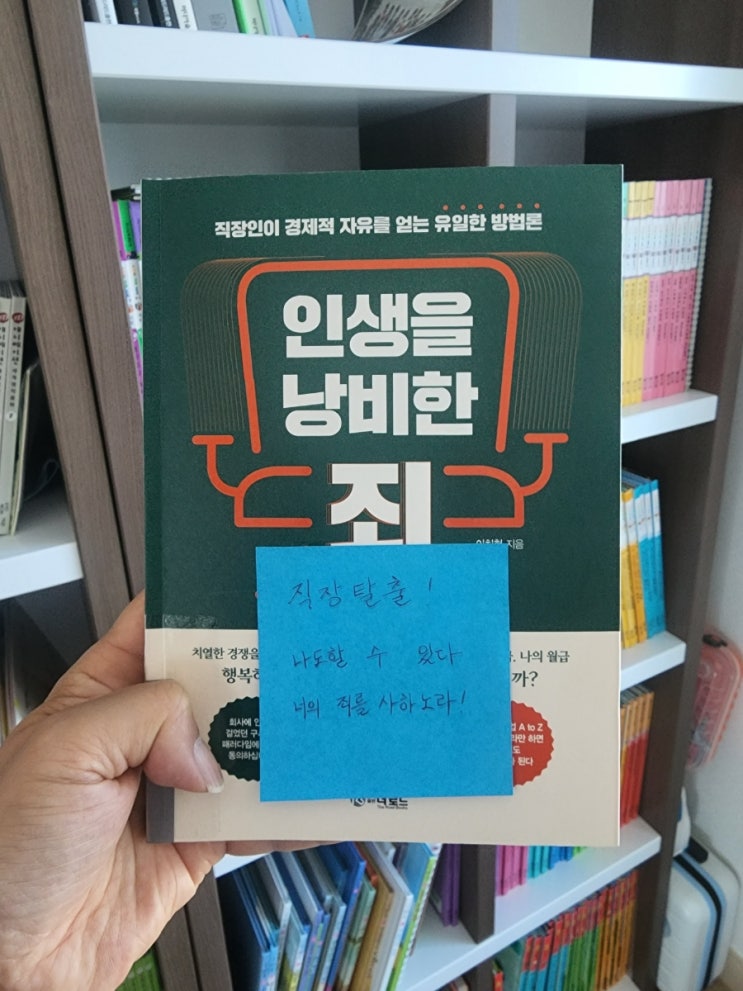 직장인이 경제적 자유를 얻는 유일한 방법론
인생을
낭비한
죄
지음
직장탈출!
나도할 수 있다
너의 죄를 사하노라!
치열한 경쟁을
나의 월급
행복하
까?
회사에 인
걸었던 구
패러다임에
동의하십
A to Z
라만 하면
도
된다